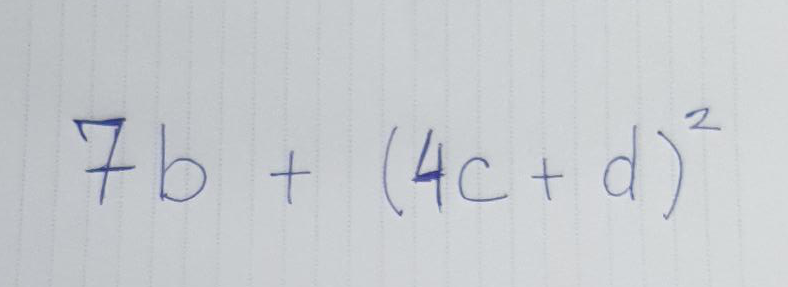 7b + (4c + d)²